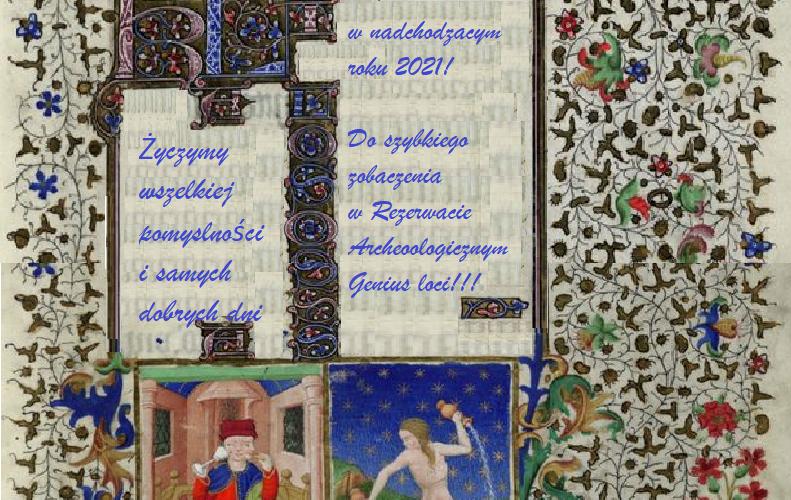 Życzymy
wszelkiej
pomyslnoŚci
i samych
dobrych dni
w nadchodzacym
roku 2021!
Do szybkiego
zobaczenia
w Rezerwacie
Archeoologicznym
Genius loci!!!